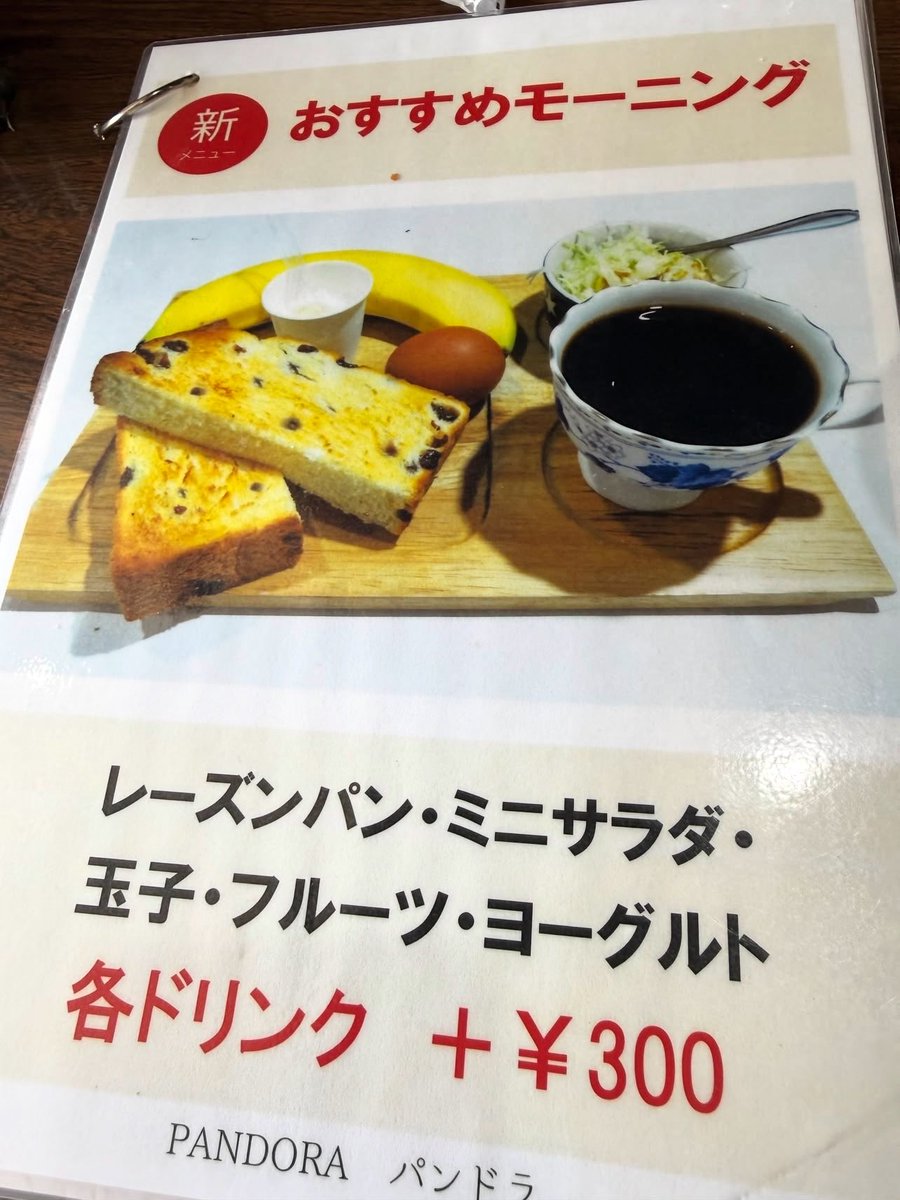 新
メニュー
おすすめモーニング
レーズンパン・ミニサラダ・
玉子・フルーツ・ヨーグルト
各ドリンク ＋￥300
PANDORA パンドラ